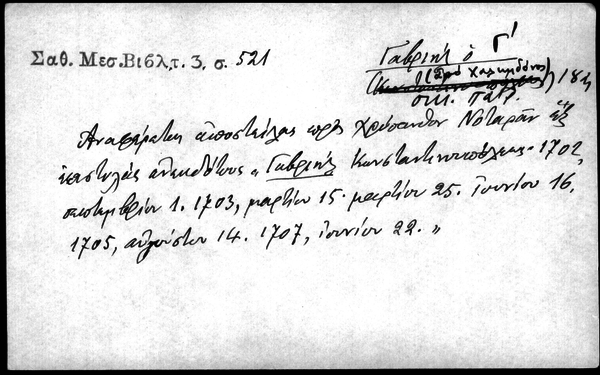 Σαθ. Μεσ.Βιβλ,τ. 3, σ. 521
Γαβριήλ ὁ Γ'
(ἀπὸ Χαλκηδόνος) 18η
οἰκ. πατρ.
Ἀναφέρεται ἀποστείλας πρὸς Χρύσανθον Νοταρᾶν ἓξ
ἐπιστολὰς ἀνεκδότους „Γαβριήλ Κωνσταντινουπόλεως 1702,
σεπτεμβρίου 1. 1703, μαρτίου 15. μαρτίου 25. ἰουνίου 16.
1705, αὐγούστου 14. 1707, ἰουνίου 22. „